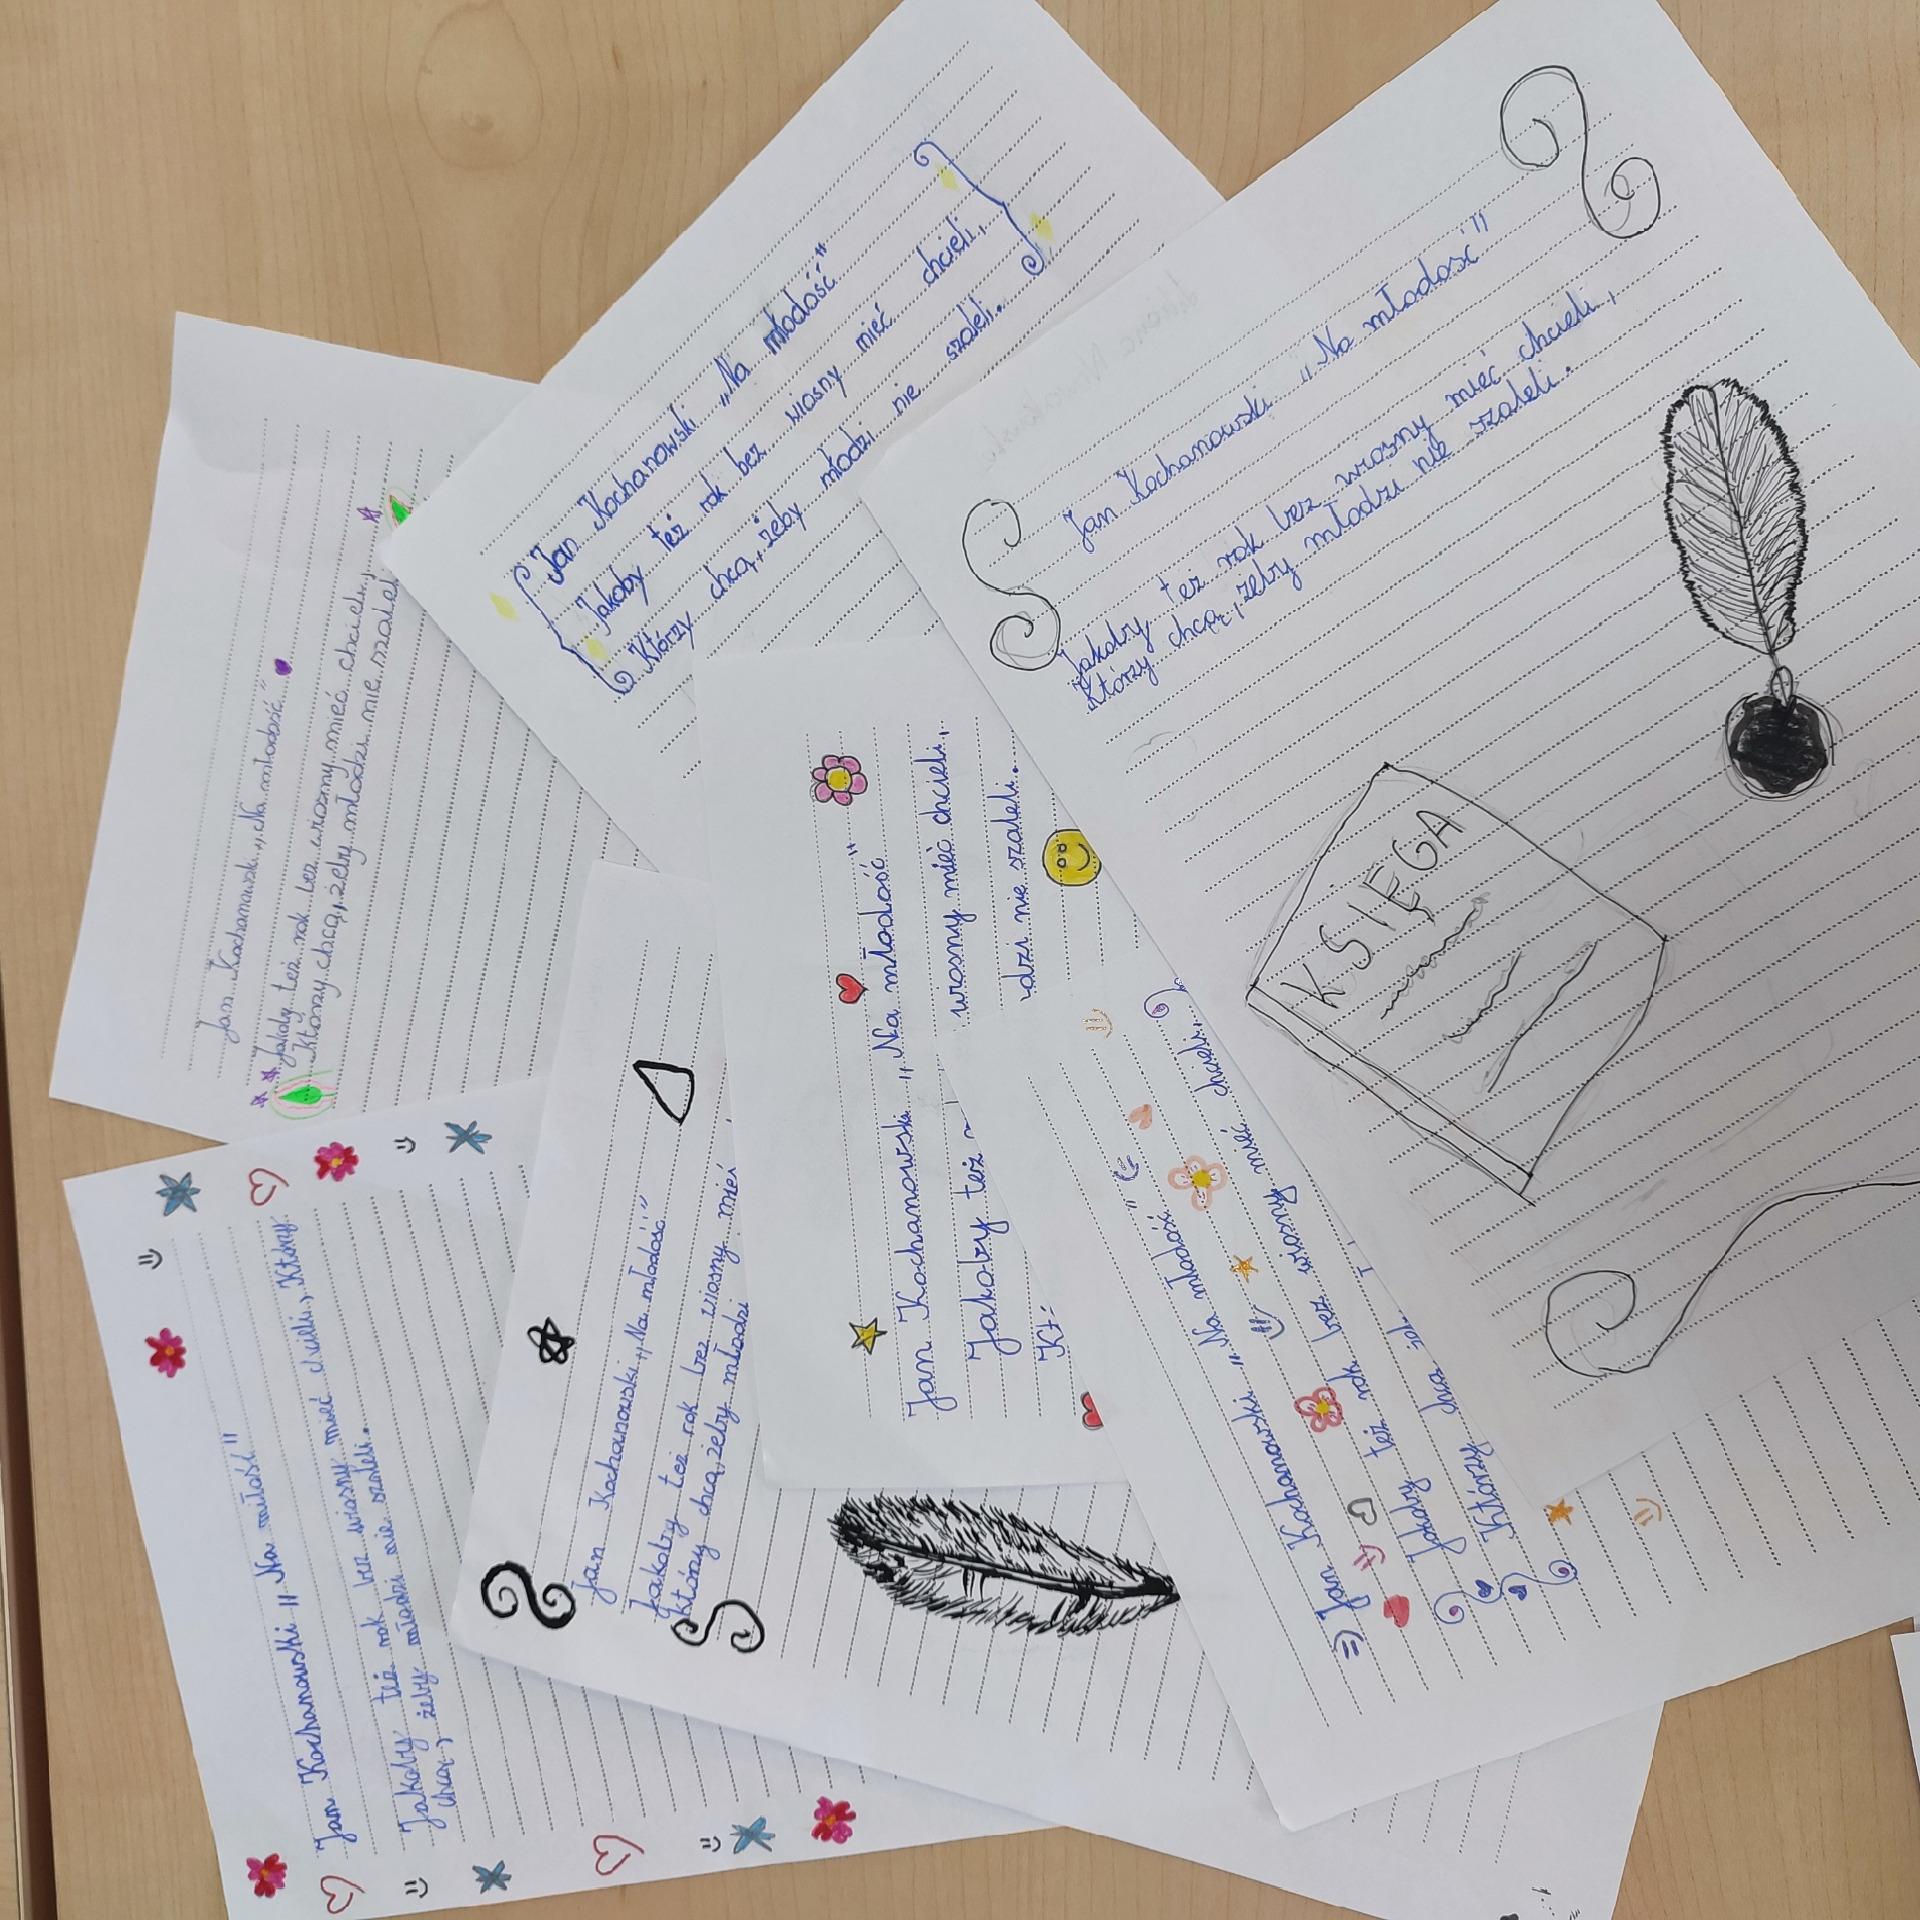 Jan Kochanowski „Na młodość”
Jakoby też rok bez wiosny mieć chcieli,
Którzy chcą, żeby młodzi nie szaleli
Jan Kochanowski „Na młodość”
Jakoby też rok bez wiosny mieć chcieli,
Którzy chcą, żeby młodzi nie szaleli.
Jan Kochanowski „Na młodość”
Jakoby też rok bez wiosny mieć chcieli,
Którzy chcą, żeby młodzi nie szaleli.
KSIĘGA
Jan Kochanowski „Na młodość”
Jakoby też
wiosny mieć chcieli,
Kt
dzi nie szaleli.
Jan Kochanowski „Na miłość”
Jakoby też rok bez wiosny mieć chcieli, Którzy
chcą, żeby młodzi nie szaleli.
Jan Kochanowski „Na młodość”
Jakoby też rok bez wiosny mieć
którzy chcą, żeby młodzi
Jan Kochanowski „Na młodość”
Jakoby też rok bez wiosny mieć chcieli,
Którzy chcą